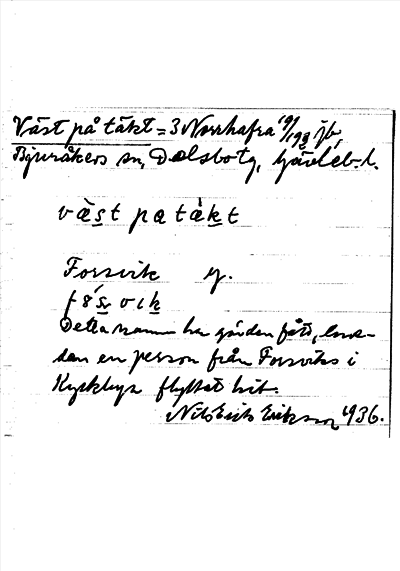 Väst på täkt = 3 Norrhafra 19/198 jb,
Bjuråkers sn, Delsbo tg, Gävleb. l.
väst pa täkt
Forsvik g.
Detta namn har gården fått, 
dan en person från Forsviks i
Kyrkbyn flyttat hit.
Nils Erik Eriksson 1936.